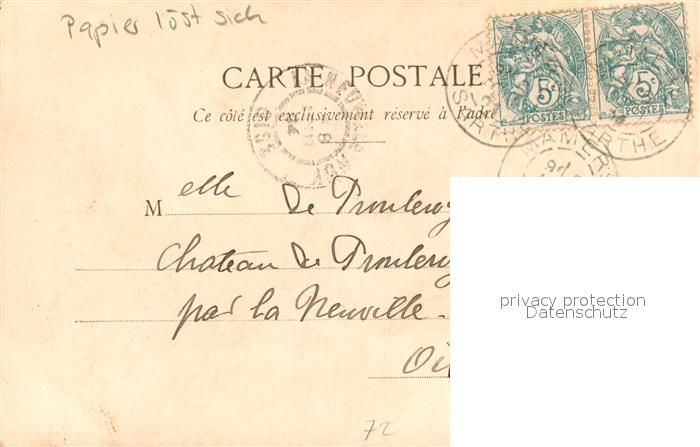 Papier löst sich
CARTE POSTALE
Ce côté est exclusivement réservé à l'adre
5c 5c
POSTES POSTES
MAMERS
SARTHE
M elle De
Chateau du
par la Neuville
72
privacy protection
Datenschutz